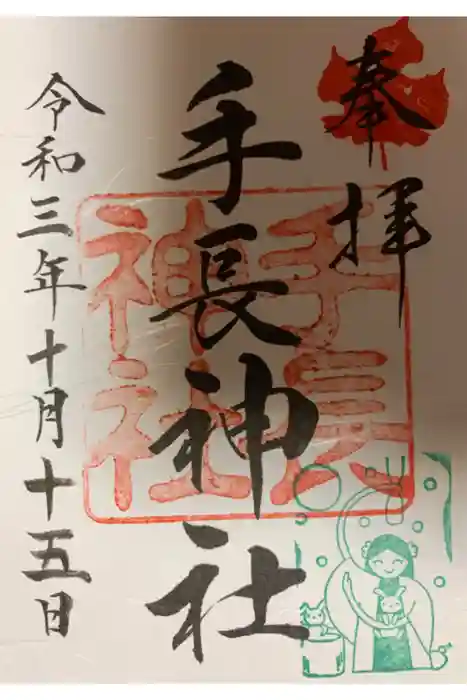 奉拝
手長神社
手長
神社
令和三年十月十五日